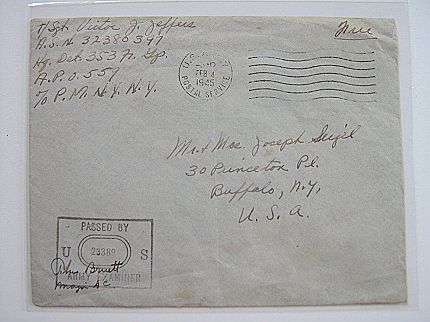 T/Sgt. Victor J. Jeffers
A.S.N. 32380597
Hq. Det. 353 Ftr. Gp.
A.P.O. 557
% P.M. N.Y. N.Y.
Free
U.S. ARMY
FEB 4
1945
POSTAL SERVICE
Mr. & Mrs. Joseph
30 Princeton Pl.
Buffalo, N.Y.
U. S. A.
PASSED BY
U S
ARMY EXAMINER